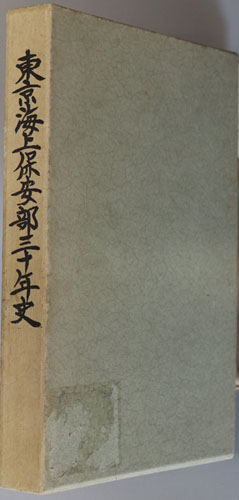 東京海上保安部三十年史